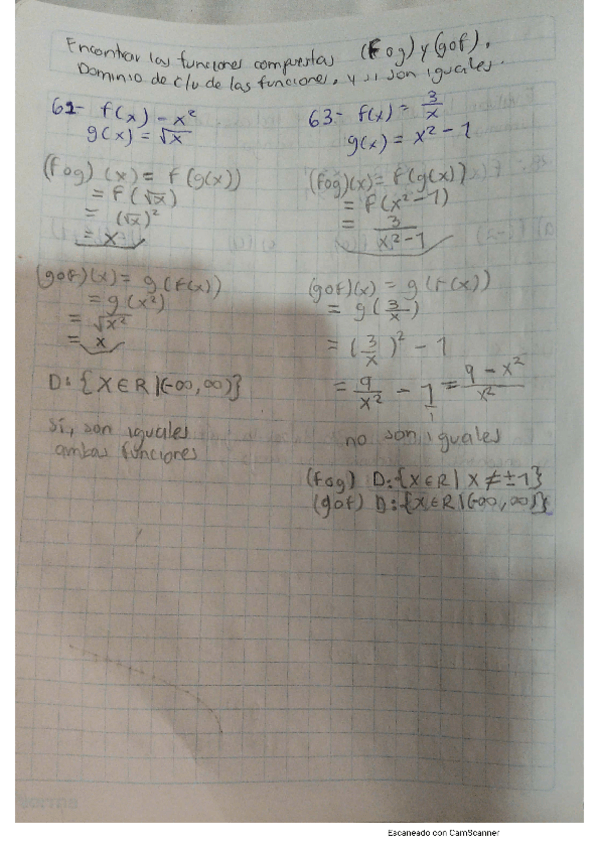 Encontrar las funciones compuestas (fog) y (gof).
Dominio de c/u de las funciones, y si son iguales.
61- f(x) = x²
g(x) = √x
(fog)(x) = f(g(x))
= f(√x)
= (√x)²
= x
(gof)(x) = g(f(x))
= g(x²)
= √x²
= x
D: {x ∈ R | (-∞, ∞)}
Sí, son iguales
ambas funciones
63- f(x) = 3/x
g(x) = x² - 1
(fog)(x) = f(g(x))
= f(x² - 1)
= 3/(x² - 1)
(gof)(x) = g(f(x))
= g(3/x)
= (3/x)² - 1
= 9/x² - 1/1 = (9 - x²)/x²
no son iguales
(fog) D: {x ∈ R | x ≠ ±1}
(gof) D: {x ∈ R | (-∞, ∞)}
Escaneado con CamScanner